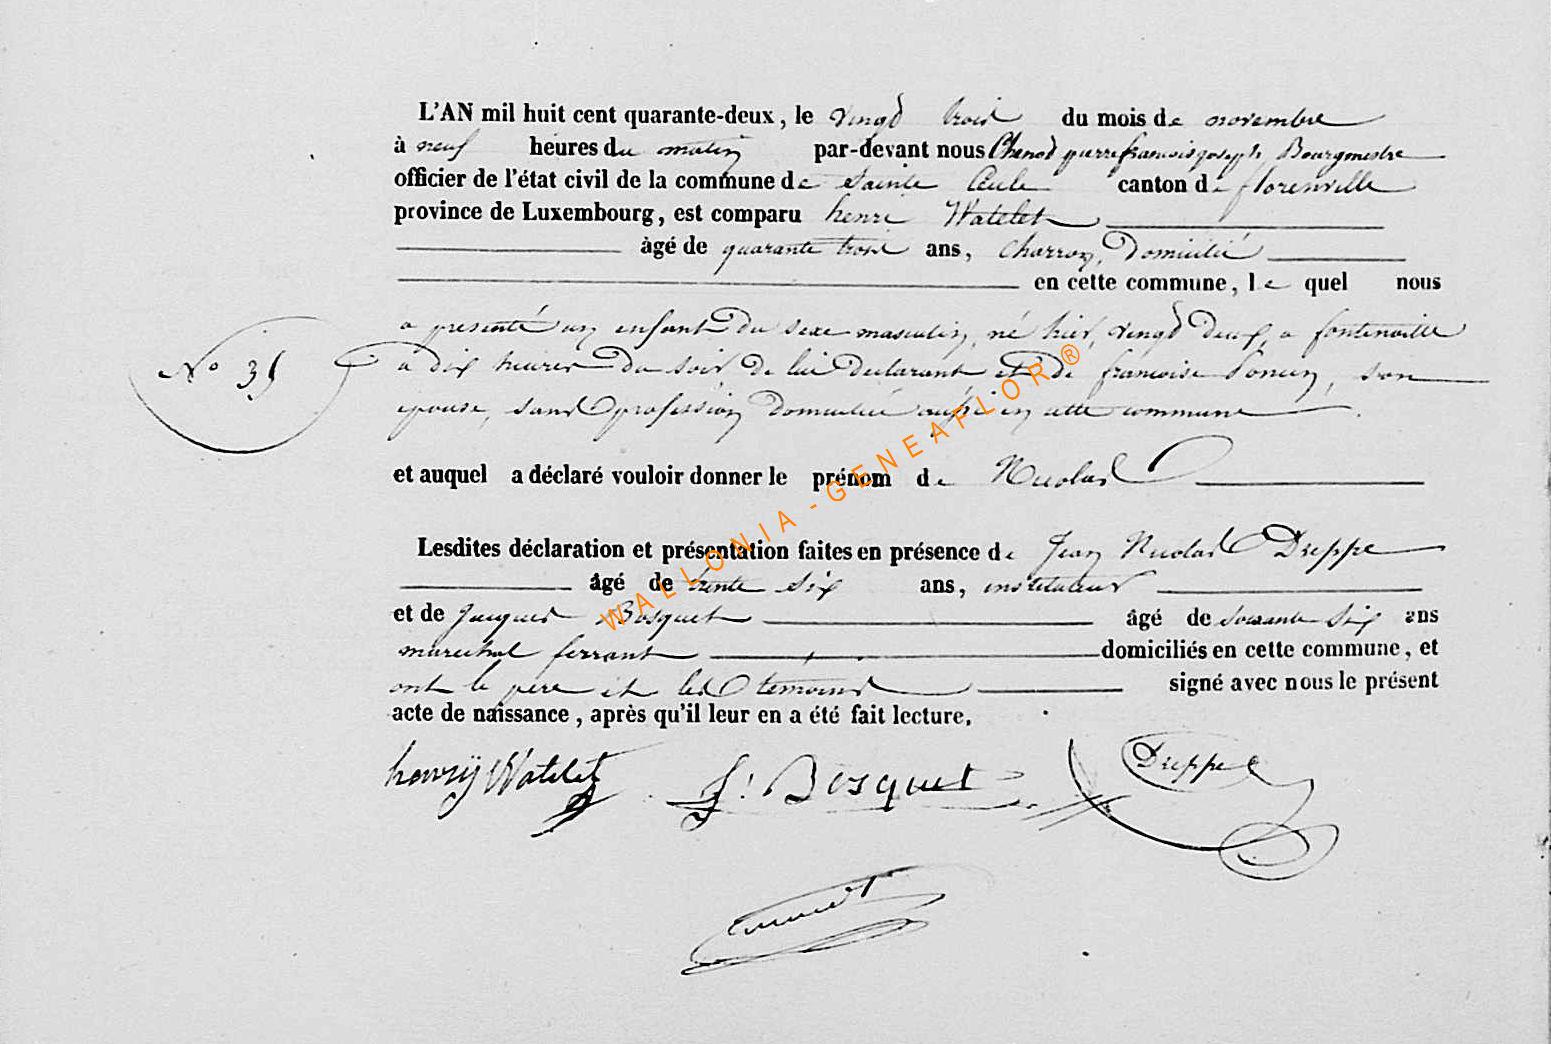 L'AN mil huit cent quarante-deux, le vingt trois du mois de novembre
à neuf heures du matin par-devant nous pierre francois joseph Bourgmestre
officier de l'état civil de la commune de Sainte Cecile canton de florenville
province de Luxembourg, est comparu henri Watelet
âgé de quarante trois ans, charron, Domicilié
en cette commune, le quel nous
a presenté un enfant du sexe masculin, né hier, vingt deux, a fontenoille
N° 35
a dix heures du soir de lui declarant et de francoise Poncin, son
epouse, sans profession domiciliée aussi en cette commune.
et auquel a déclaré vouloir donner le prénom de Nicolas
Lesdites déclaration et présentation faites en présence de Jean Nicolas Dreppe
âgé de trente six ans, instituteur
et de Jacques Bosquet âgé de soixante six ans
marechal ferrant domiciliés en cette commune, et
ont le père et les temoins signé avec nous le présent
acte de naissance, après qu'il leur en a été fait lecture.
henrÿ Watelet J: Bosquet Dreppe
WALLONIA - GENEAFLOR ®